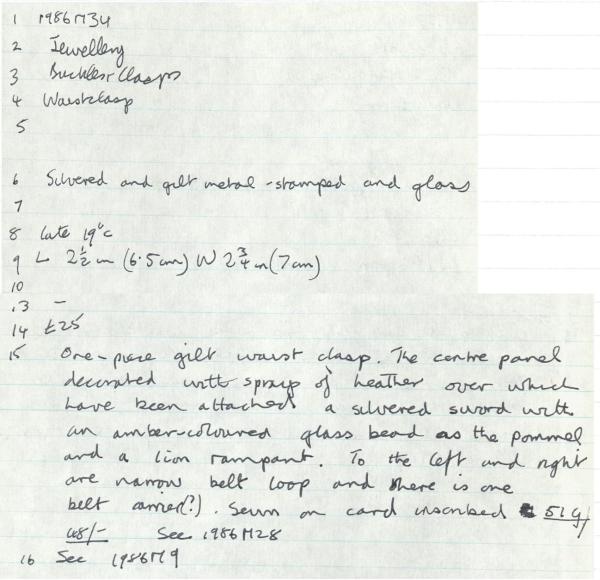 1 1986M34
2 Jewellery
3 Buckles + Clasps
4 Waistclasp
5
6 Silvered and gilt metal - stamped and glass
7
8 late 19thc
9 L 2 1/2 in (6.5cm) W 2 3/4 in (7cm)
10
13 -
14 £25
15 One-piece gilt waist clasp. The centre panel
decorated with sprays of heather over which
have been attached a silvered sword with
an amber-coloured glass bead as the pommel
and a lion rampant. To the left and right
are narrow belt loop and there is one
belt (?). Sewn on card inscribed 51G/
48/- See 1986M28
16 See 1986M9